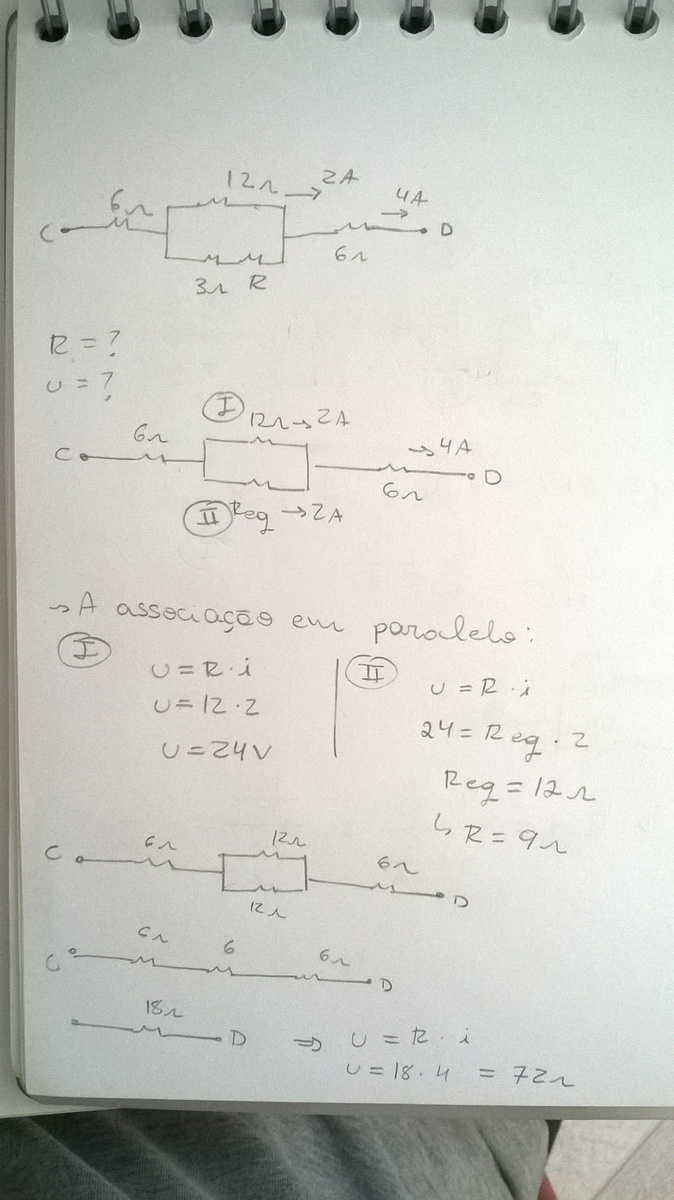 12Ω → 2A
6Ω 4A →
C D
3Ω R 6Ω
R = ?
U = ?
I 12Ω → 2A
6Ω → 4A
C D
6Ω
II Req → 2A
→ A associação em paralelo:
I
U = R · i
U = 12 · 2
U = 24V
II
U = R · i
24 = Req · 2
Req = 12Ω
↳ R = 9Ω
C 6Ω 12Ω 6Ω D
12Ω
C 6Ω 6 6Ω D
18Ω
D ⇒ U = R · i
U = 18 · 4 = 72Ω